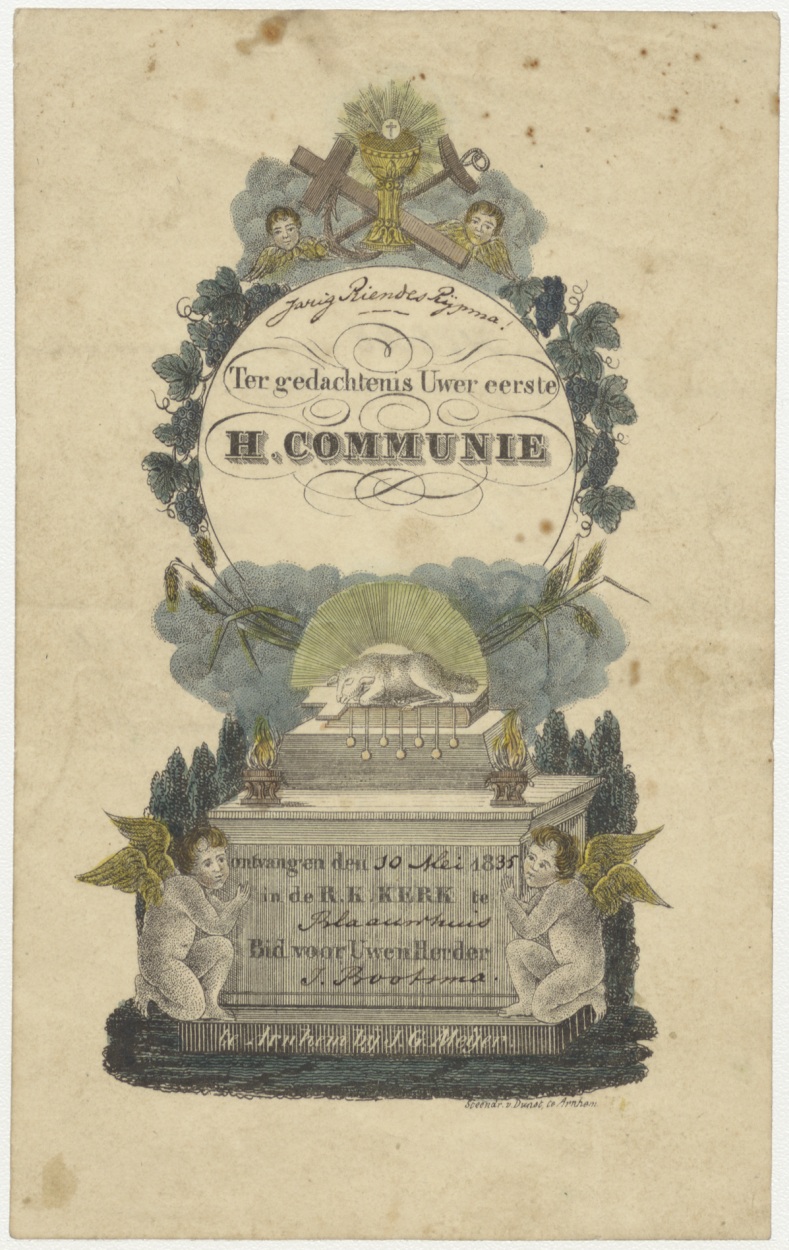 Jarig Riendes Rijpma!
Ter gedachtenis Uwer eerste
H. COMMUNIE
ontvangen den 10 Mei 1835
in de R.K. KERK te
Blaauwhuis
Bid voor Uwen Herder
J. Bootsma.
te Arnhem bij J. G. Meijer.
Steendr. v. te Arnhem